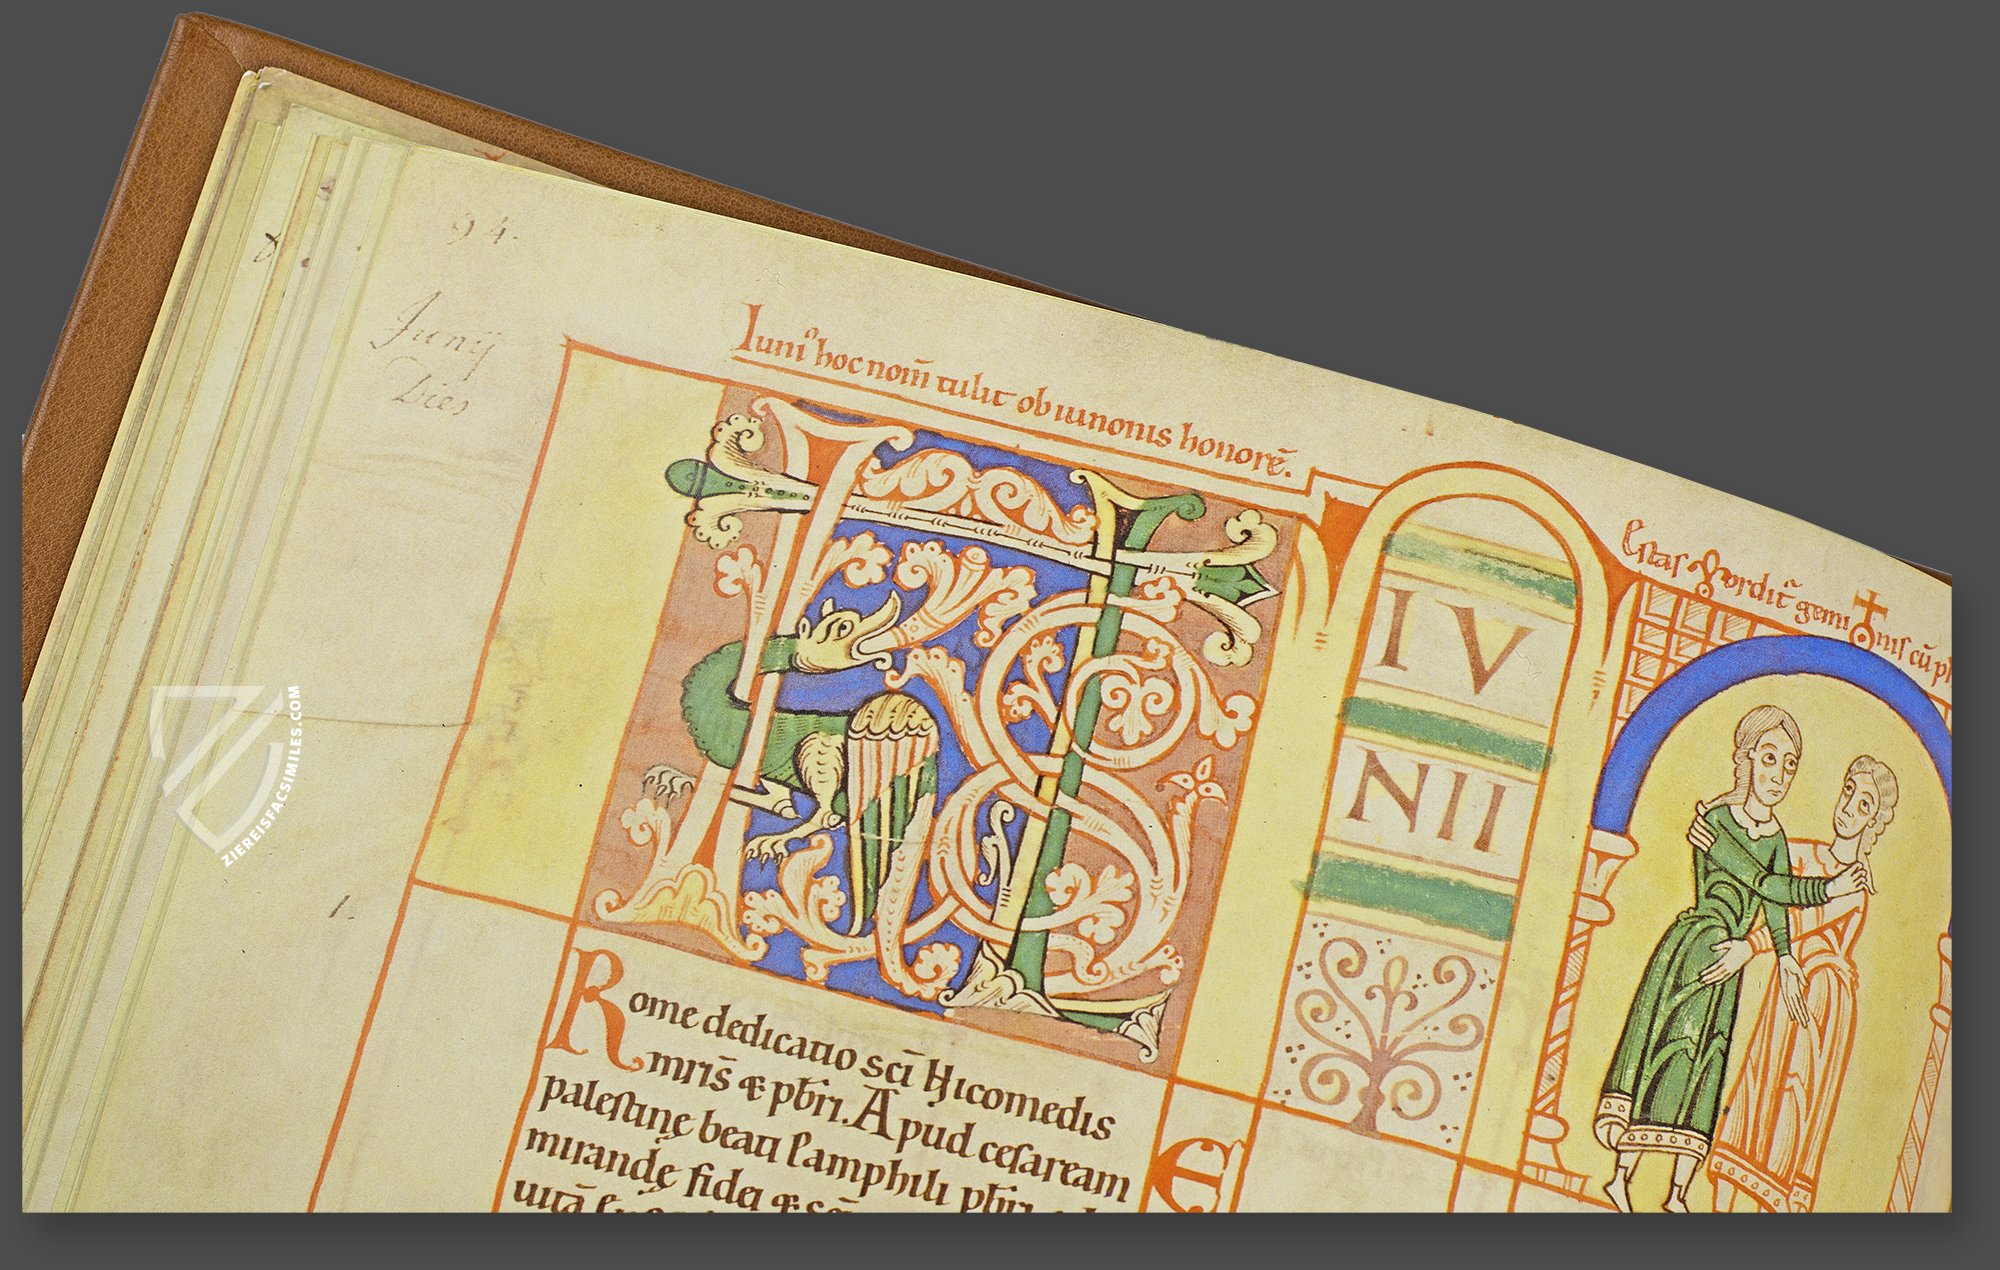 94.
Junij
Dies
Iuni⁹ hoc nom̄ tulit ob iunonis honorē.
Estas
IV
NII
Rome dedicatio sc̄i Nicomedis
mr̄is & pb̄ri. Apud cesaream
palestinę beati Pamphili pb̄ri
mirandę fidei &
uitā
E
1.
ZIEREISFACSIMILES.COM